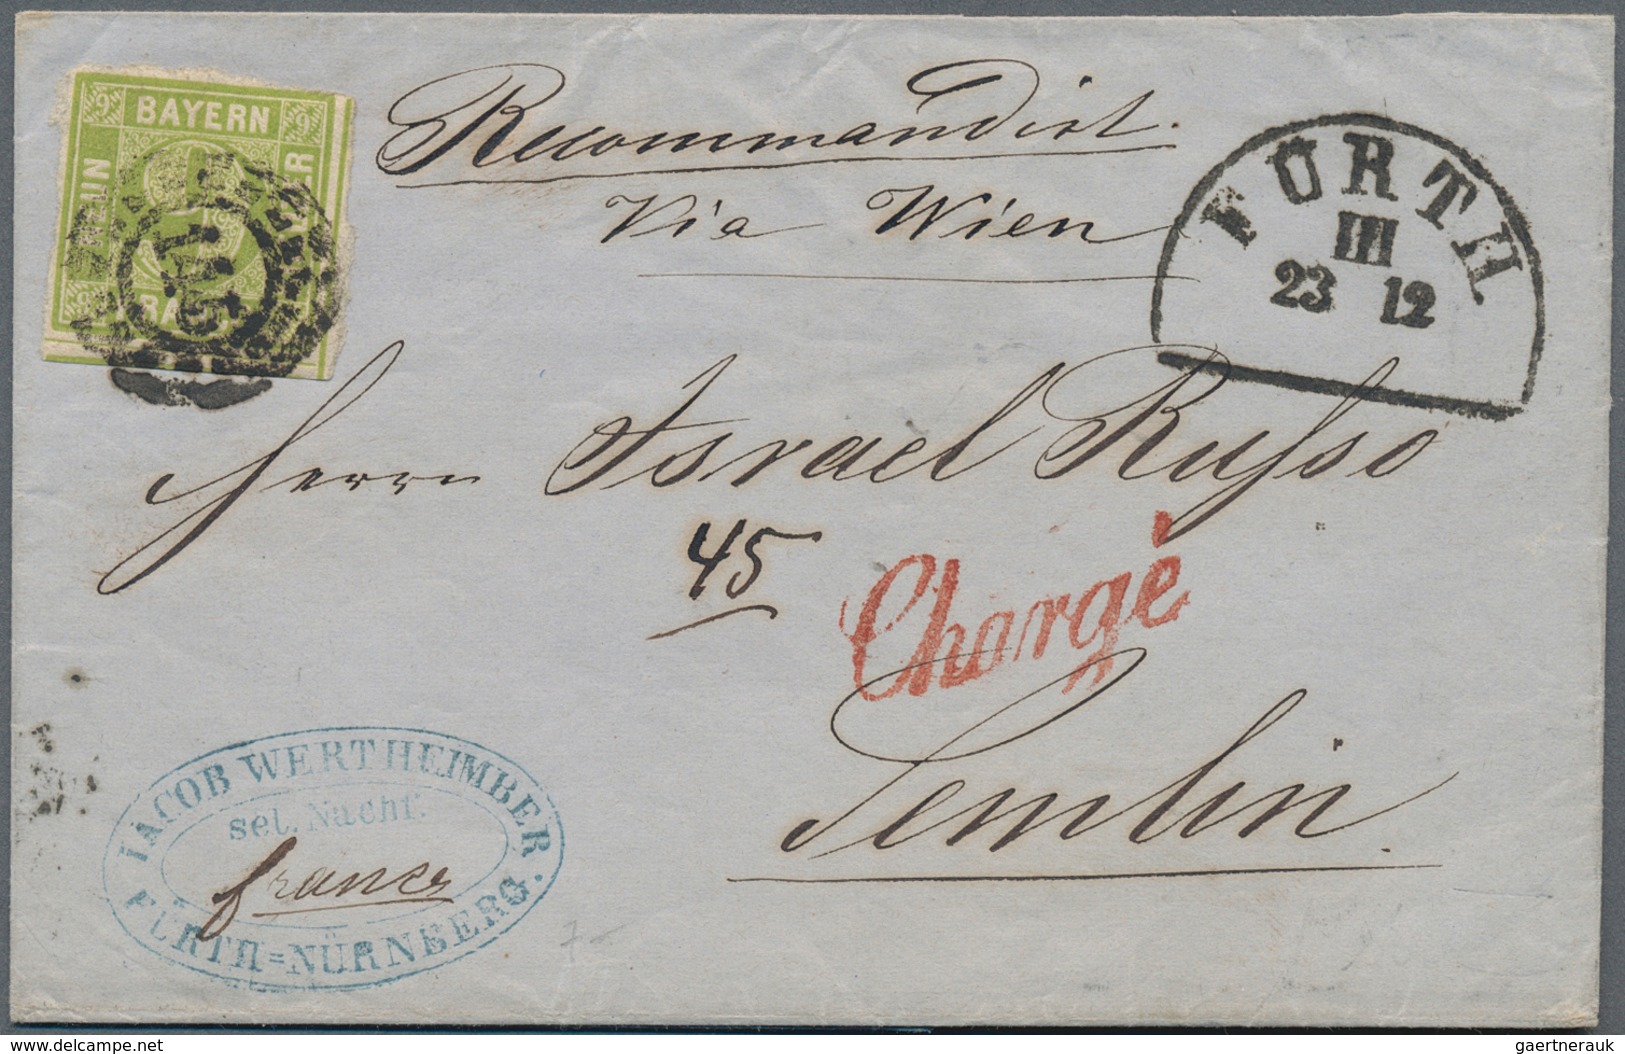 9 BAYERN 9
NEUN
9 BAYERN
145
Recommandirt.
Via Wien
FÜRTH.
III
23 12
Herrn Israel Russo
45
Chargè
Semlin.
JACOB WERTHEIMBER
sel. Nachf.
franco
FÜRTH=NÜRNBERG.
www.delcampe.net
gaertnerauk